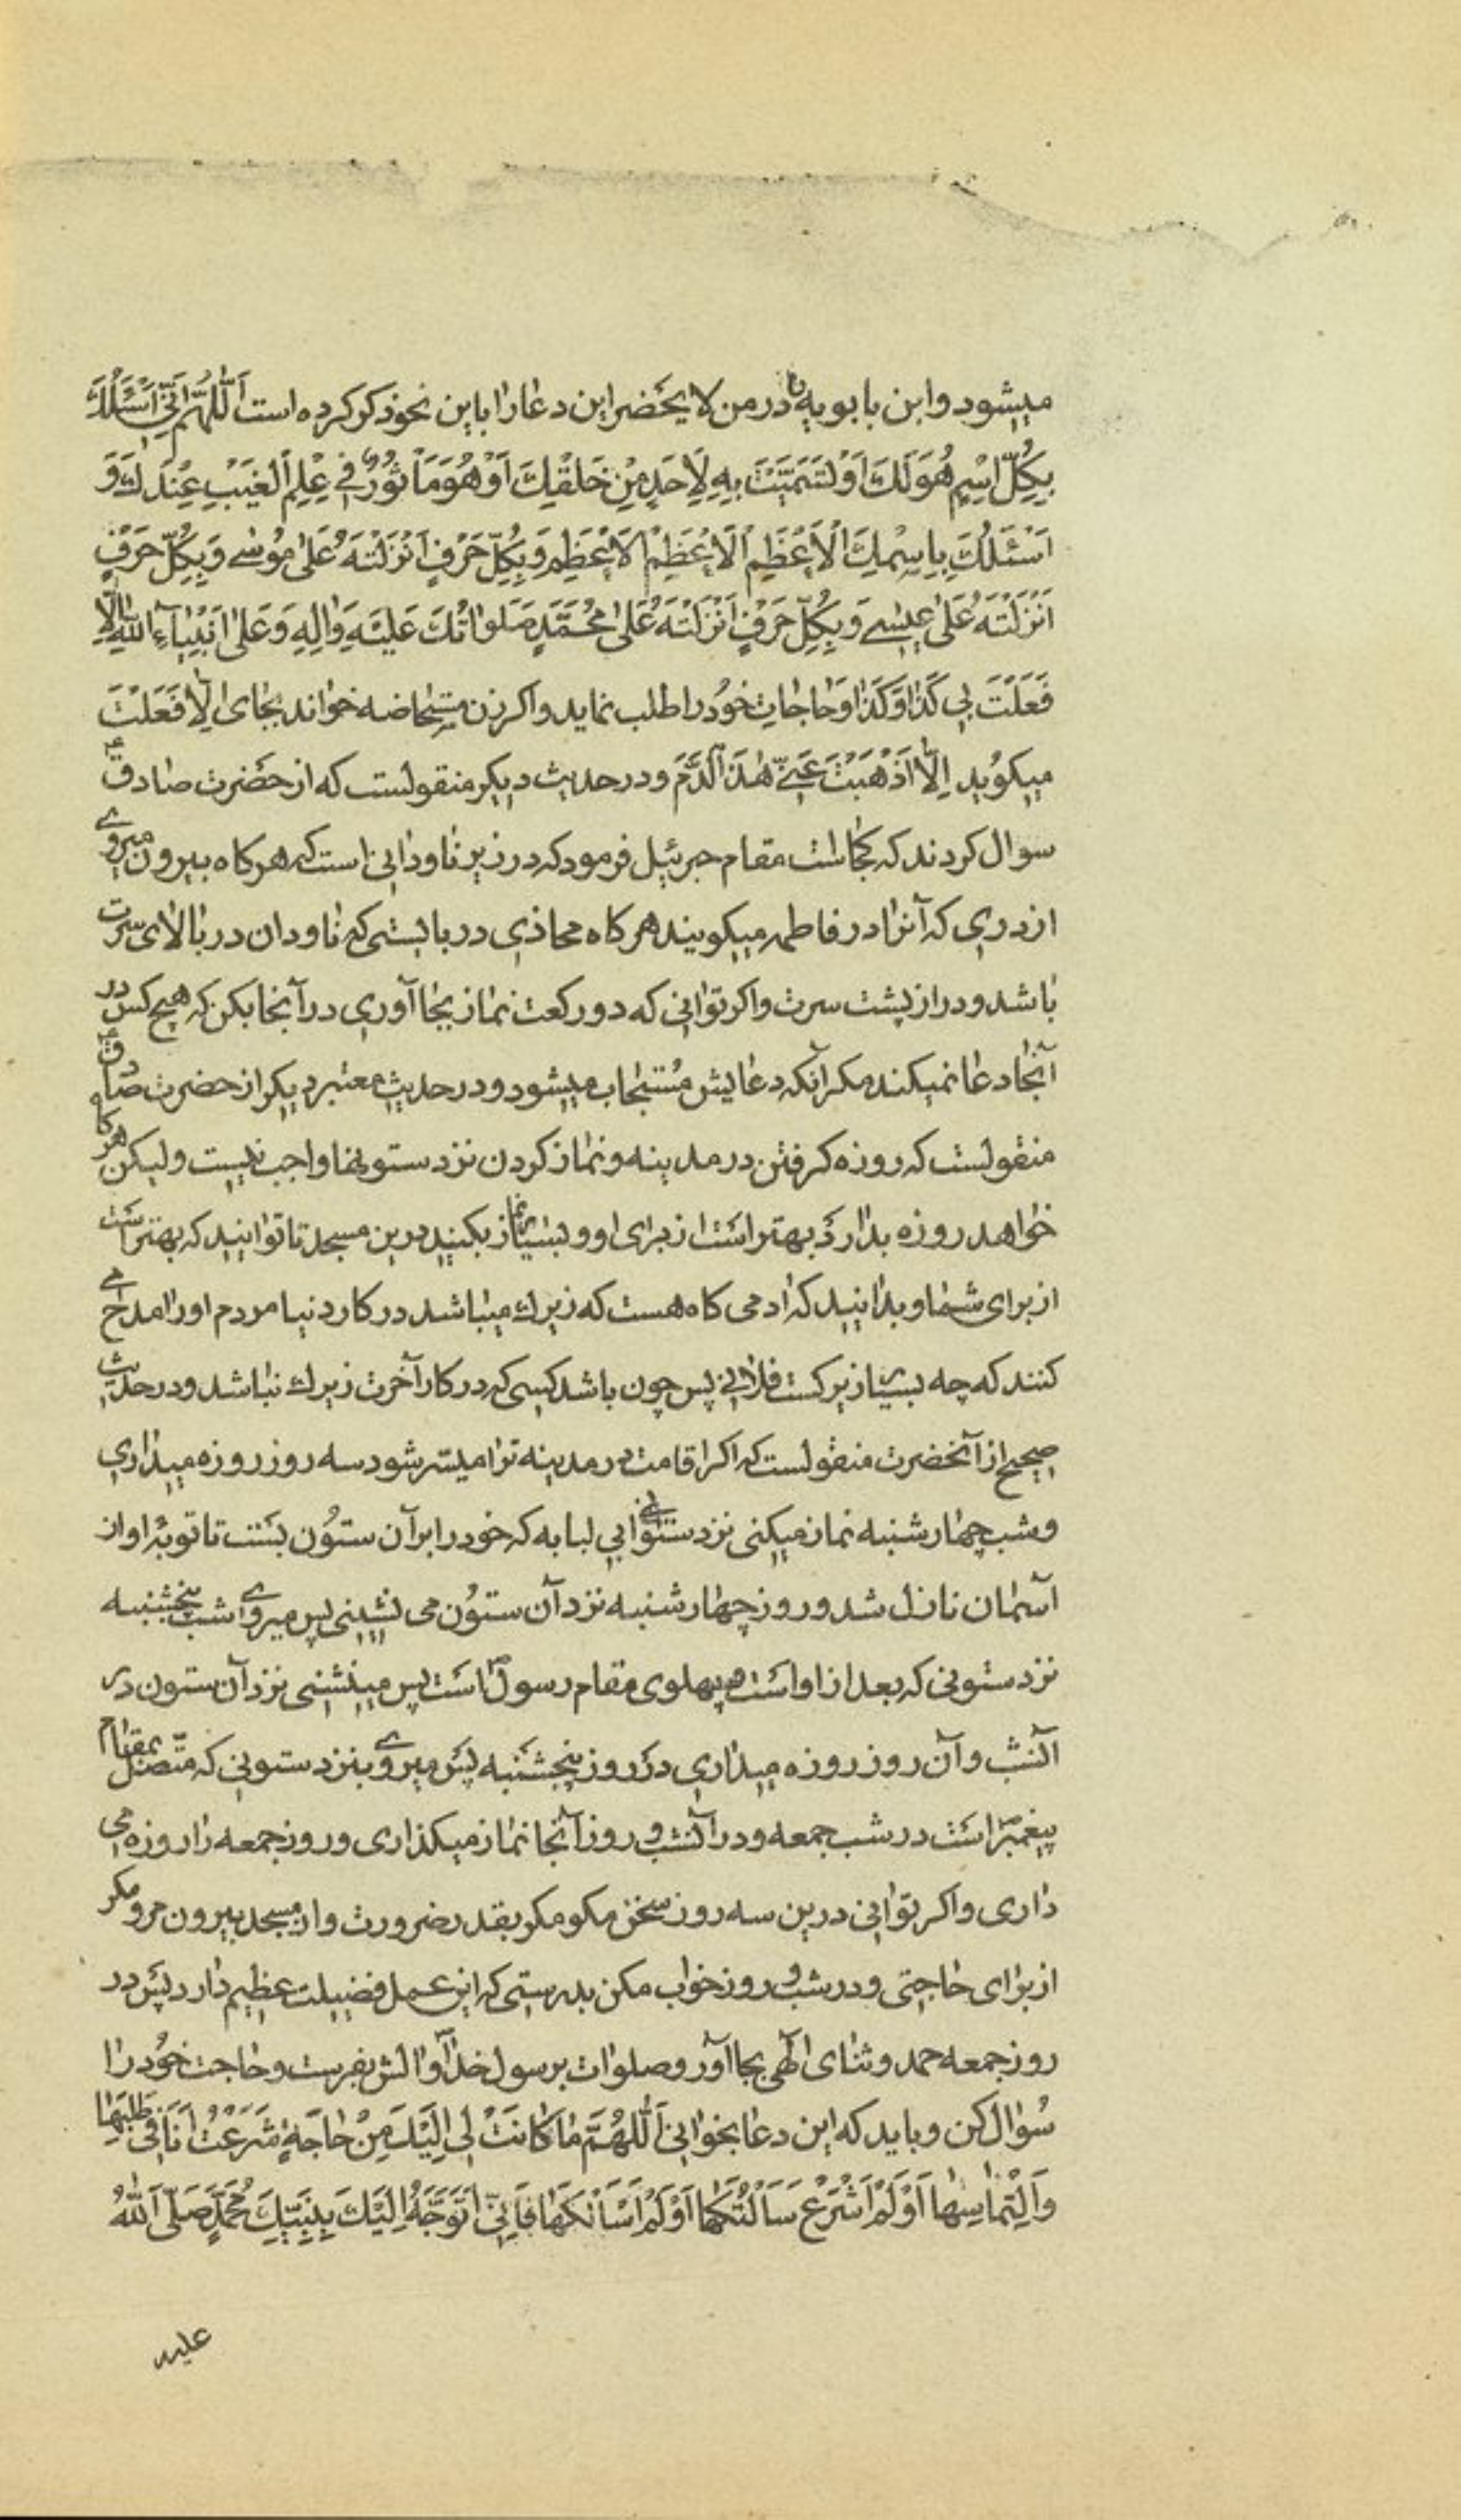 میشود و ابن بابویه در من لا یحضر این دعا را باین نحو ذکر کرده است اَللّهُمَّ اِنّی اَسْئَلُكَ
بِكُلِّ اسْمٍ هُوَ لَكَ اَوْ تَسَمَّيْتَ بِهِ لِاَحَدٍ مِنْ خَلْقِكَ اَوْ هُوَ مَاْثُورٌ فی عِلْمِ الْغَيْبِ عِنْدَكَ وَ
اَسْئَلُكَ بِاسْمِكَ الْاَعْظَمِ الْاَعْظَمِ الْاَعْظَمِ وَ بِكُلِّ حَرْفٍ اَنْزَلْتَهُ عَلی مُوسی وَ بِكُلِّ حَرْفٍ
اَنْزَلْتَهُ عَلی عیسی وَ بِكُلِّ حَرْفٍ اَنْزَلْتَهُ عَلی مُحَمَّدٍ صَلَواتُكَ عَلَيْهِ وَ الِهِ وَ عَلی اَنْبِيآءِ اللهِ اِلّا
فَعَلْتَ بی كَذا وَ كَذا و حاجات خود را طلب نماید و اکر زن مستحاضه خواند بجای اِلّا فَعَلْتَ
میکوید اِلّا اَذْهَبْتَ عَنّی هذَا الدَّمَ و در حدیث دیکر منقولست که از حضرت صادق ع
سوال کردند که کجاست مقام جبرئیل فرمود که در زیر ناودانی است که هرکاه بیرون میروی
از دری که آنرا در فاطمه میکویند هرکاه محاذی در بایستی که ناودان در بالای سرت
باشد و در از پشت سرت و اکر توانی که دو رکعت نماز بجا آوری در آنجا بکن که هیچ کس در
آنجا دعا نمیکند مکر آنکه دعایش مستجاب میشود و در حدیث معتبر دیکر از حضرت صادق ع
منقولست که روزه کرفتن در مدینه و نماز کردن نزد ستونها واجب نیست ولیکن هر کاه
خواهد روزه بدارد بهتر است از برای او و بسیار نماز بکنید درین مسجد تا توانید که بهتر است
از برای شما و بدانید که ادمی کاه هست که زیرك میباشد در کار دنیا مردم او را مدح می
کنند که چه بسیار زیرکست فلانی پس چون باشد کسی که در کار آخرت زیرك نباشد و در حدیث
صحیح از آنحضرت منقولست که اکر اقامت در مدینه ترا میسر شود سه روز روزه میداری
و شب چهارشنبه نماز میکنی نزد ستون ابی لبابه که خود را بر آن ستون بست تا توبهٔ او از
آسمان نازل شد و روز چهارشنبه نزد آن ستون می نشینی پس میروی شب پنجشنبه
نزد ستونی که بعد از او است پهلوی مقام رسول ص است پس مینشینی نزد آن ستون در
آنشب و آن روز روزه میداری در روز پنجشنبه پس میروی بنزد ستونی که متصل بمقام
پیغمبر است در شب جمعه و در آنشب و روز آنجا نماز میکذاری و روز جمعه را روزه می
داری و اکر توانی درین سه روز سخن مکو مکر بقدر ضرورت و از مسجد بیرون مرو مکر
از برای حاجتی و در شب و روز خواب مکن بدرستی که این عمل فضیلت عظیم دارد پس در
روز جمعه حمد و ثنای الهی بجا آور و صلوات بر رسول خدا و آلش بفرست و حاجت خود را
سؤال کن و باید که این دعا بخوانی اَللّهُمَّ ما كانَتْ لی اِلَيْكَ مِنْ حاجَةٍ شَرَعْتُ اَنَا فی طَلَبِها
وَ الْتِماسِها اَوْ لَمْ اَشْرَعْ سَاَلْتُكَها اَوْ لَمْ اَسْاَلْكَها فَاِنّی اَتَوَجَّهُ اِلَيْكَ بِنَبِيِّكَ مُحَمَّدٍ صَلَّی اللهُ
علیه